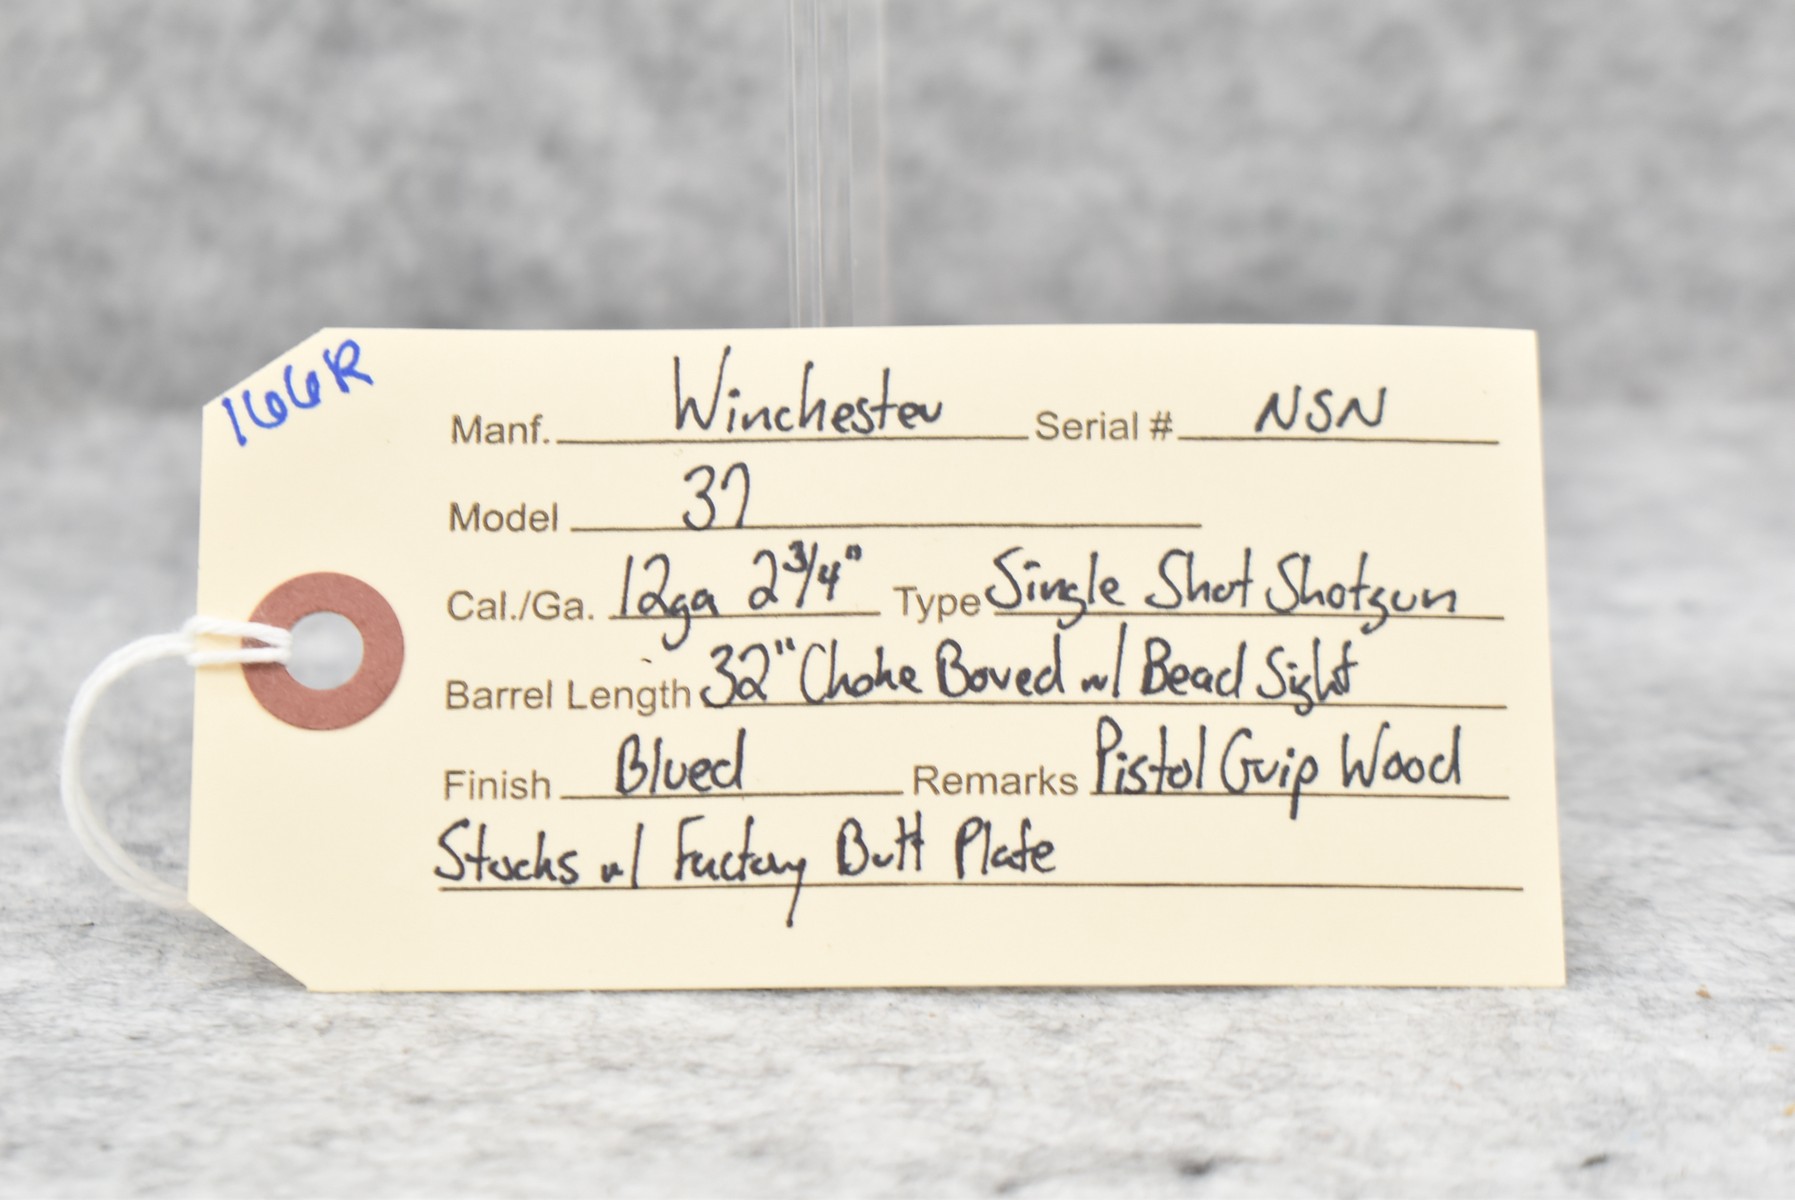 166R
Manf. Winchester Serial # NSN
Model 37
Cal./Ga. 12ga 2 3/4" Type Single Shot Shotgun
Barrel Length 32" Choke Bored w/ Bead Sight
Finish Blued Remarks Pistol Grip Wood
Stocks w/ Factory Butt Plate